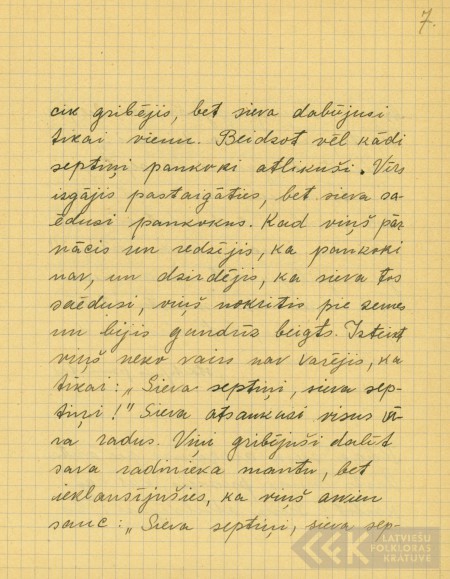 7.
cik gribējis, bet sieva dabūjusi
tikai vienu. Beidzot vēl kādi
septiņi pankoki atlikuši. Vīrs
izgājis pastaigāties, bet sieva sa-
ēdusi pankokus. Kad viņš pār
nācis un redzējis, ka pankoki
nav, un dzirdējis, ka sieva tos
saēdusi, viņš nokritis pie zemes
un bijis gandrīz beigts. Izteikt
viņš neko vairs nav varējis, kā
tikai: „Sieva septiņi, sieva sep-
tiņi!" Sieva atsaukusi visus vī-
ra radus. Viņi gribējuši dalīt
sava radinieka mantu, bet
ieklausījušies, ka viņš arvien
sauc: „Sieva septiņi, sieva sep-
LATVIEŠU
FOLKLORAS
KRĀTUVE